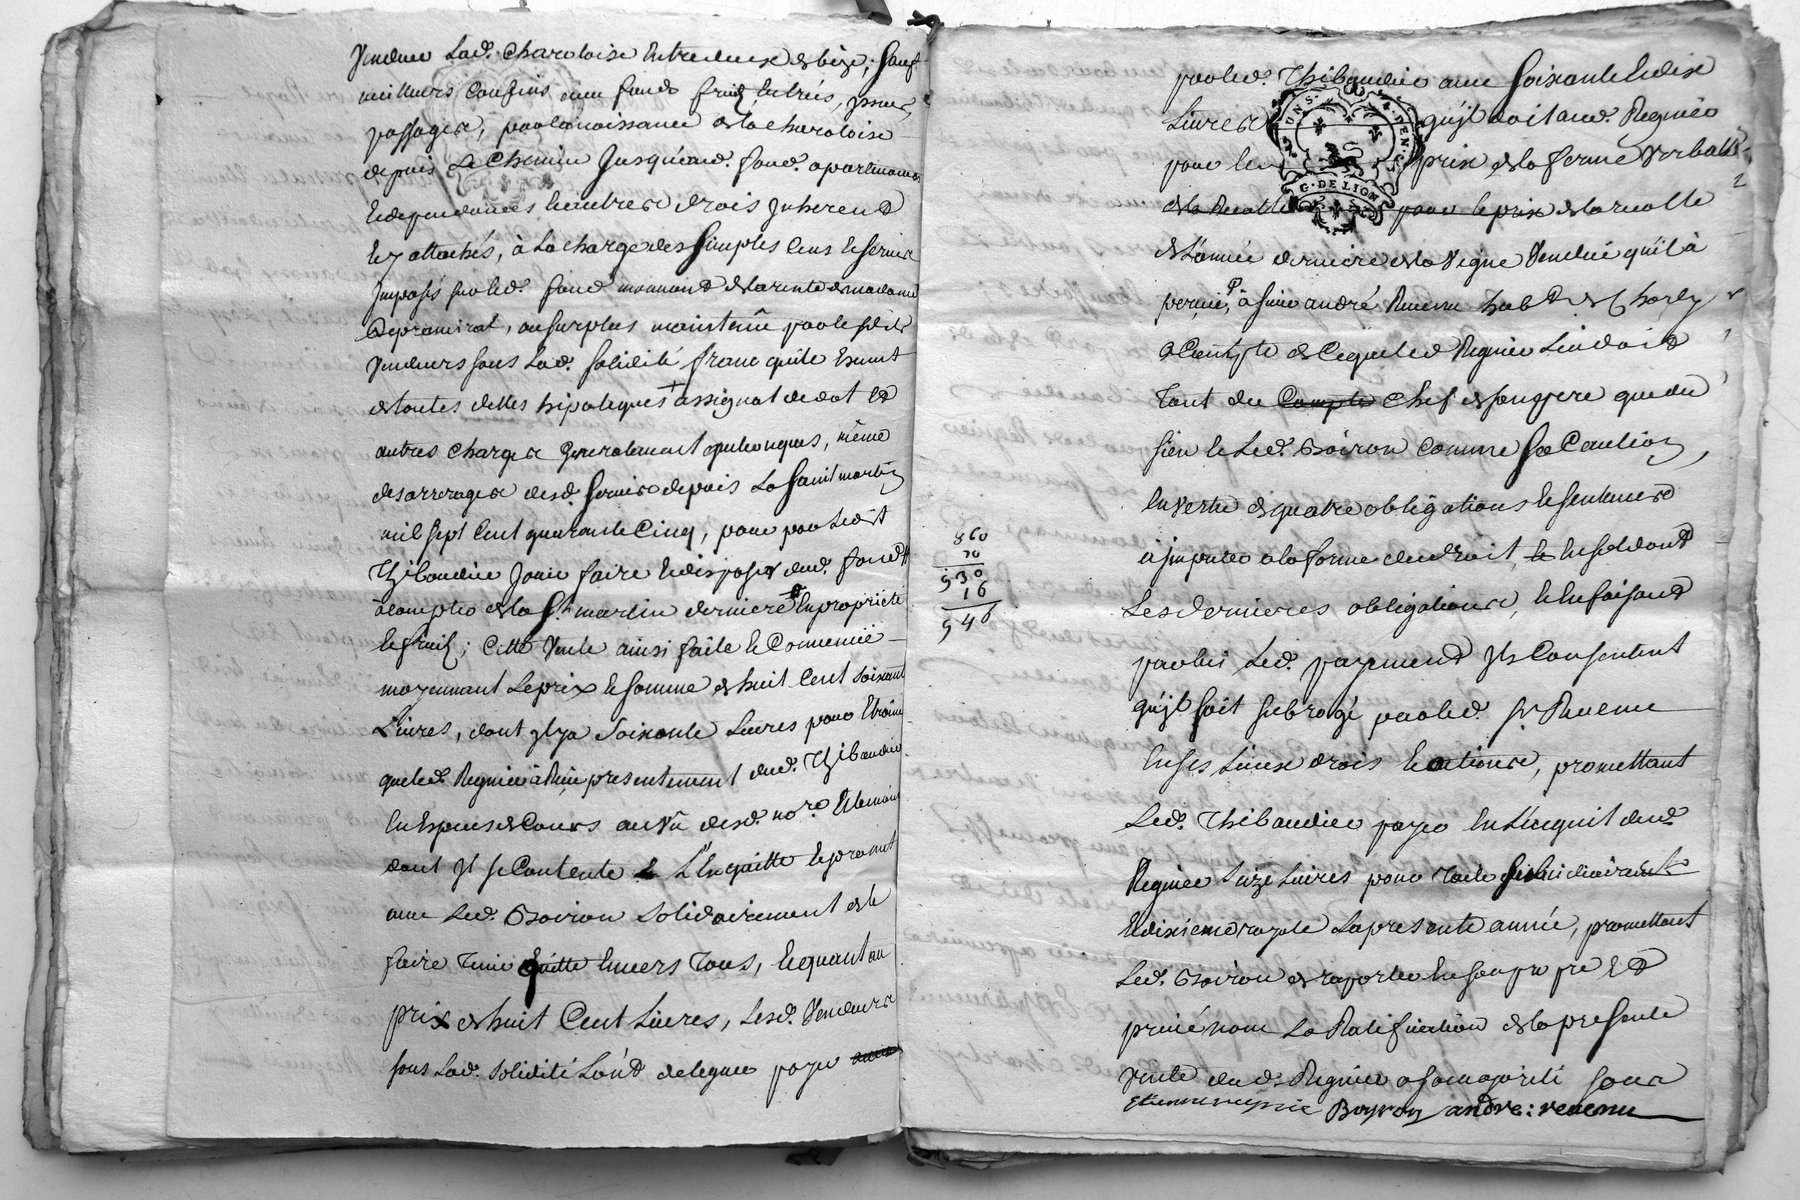 vendue lad. charoloise entredeux de bize, sauf
meilleurs confins avec fonds fruits entrées, issues,
passages, par la naissance de la charoloise
depuis le chemin jusqu'aud. fond. apartenances
et dependances et autres droits inherens
et y attachés, à la charge des simples cens et servis
imposés sur led. fond mouvant de la rente de madame
depramiral, au surplus maintenu par lesdits
vendeurs sous lad. solidité franc quite exemt
de toutes dettes hipoteques + assignat de dot et
autres charges generalement quelconques, même
des arrerages desd. servis depuis la saint martin
mil sept cent quarante cinq, pour par ledit
Thibaudier jouir faire et disposer dud. fond
à compter de la St. martin derniere en propriété
et fruits; cette vente ainsi faite et convenue
moyennant le prix et somme de huit cent soixante
Livres, dont il y a soixante livres pour etraine
que led. Regnier à reçu presentement dud. Thibaudier
en espèces de cours au vu desd. no.re et temoins
dont il se contente l'en quitte et promet
avec led. Boiron solidairement de le
faire tenir quitte envers tous, et quant au
prix de huit cent livres, lesd. vendeurs
sous lad. solidité l'ont delegué payer
par led. Thibaudier avec soixante et dix
Livres qu'il doit aud. Regnier
pour le prix de la ferme verballe
de la recolte pour le prix de la recolte
de l'année derniere de la vigne vendue qu'il à
à sieur andré Revenu hab.t de Charly
acceptant de ce que led Regnier lui doit
tant du compte chef de son pere que du
sien et led. Boiron comme sa caution,
en vertu de quatre obligations et sentences
à imputer a la forme du droit, et en soldant
les dernieres obligations, et en faisant
par lui led. payement ils consentent
qu'il soit subrogé par led. sr Revenu
en ses lieux droits et actions, promettant
led. Thibaudier payer en l'acquit dud.
Regnier seize livres pour taille subsidiaire
et dixieme royale la presente année, promettant
led. Boiron de raporter en son propre et
privé nom la Ratification de la presente
vente dud. Regnier a sa majorité sous
Boyron andre: revenu
860
70
930
16
946
GUNS. 4 DEN.
G. DE LION